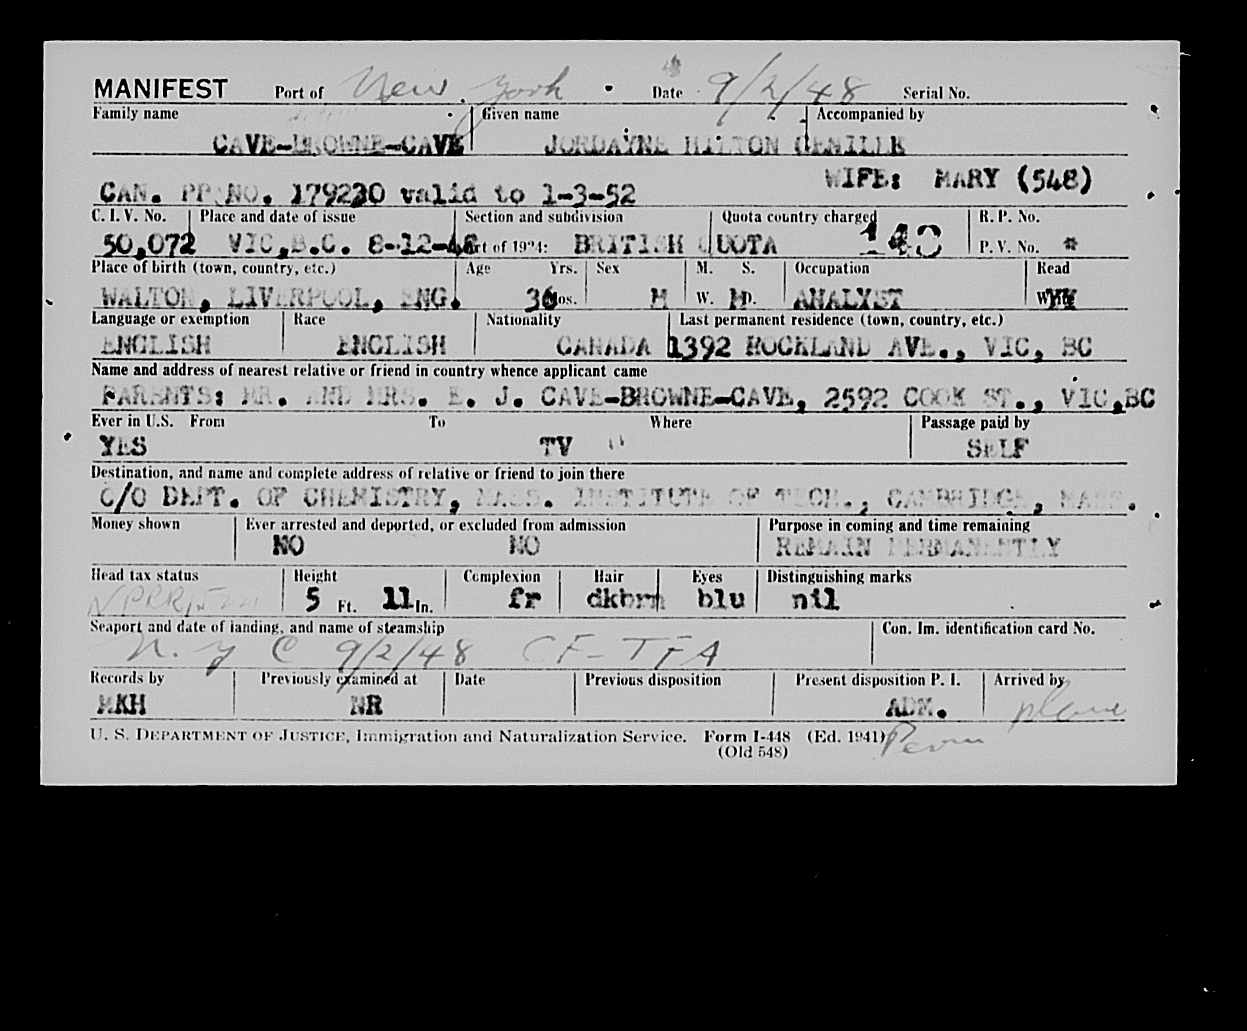 MANIFEST Port of New York Date 9/2/48 Serial No.
Family name Given name Accompanied by
CAVE-BROWNE-CAVE JORDAYNE HILTON
WIFE: MARY (548)
CAN. PP NO. 179230 valid to 1-3-52
C. I. V. No. Place and date of issue Section and subdivision Quota country charged R. P. No.
50,072 VIC,B.C. 8-12-48 Act of 1924: BRITISH QUOTA 143 P. V. No. *
Place of birth (town, country, etc.) Age Yrs. Sex M. S. Occupation Read
WALTON, LIVERPOOL, ENG. 36 Mos. M W. M D. ANALYST Write YY
Language or exemption Race Nationality Last permanent residence (town, country, etc.)
ENGLISH ENGLISH CANADA 1392 ROCKLAND AVE., VIC, BC
Name and address of nearest relative or friend in country whence applicant came
PARENTS: MR. AND MRS. E. J. CAVE-BROWNE-CAVE, 2592 COOK ST., VIC,BC
Ever in U.S. From To Where Passage paid by
YES TV " SELF
Destination, and name and complete address of relative or friend to join there
C/O DEPT. OF CHEMISTRY, MASS. INSTITUTE OF TECH., CAMBRIDGE, MASS.
Money shown Ever arrested and deported, or excluded from admission Purpose in coming and time remaining
NO NO REMAIN PERMANENTLY
Head tax status Height Complexion Hair Eyes Distinguishing marks
5 Ft. 11 In. fr dkbrn blu nil
Seaport and date of landing, and name of steamship Con. Im. identification card No.
N. Y C 9/2/48 CF-TFA
Records by Previously examined at Date Previous disposition Present disposition P. I. Arrived by
MKH NR ADM. plane
U. S. DEPARTMENT OF JUSTICE, Immigration and Naturalization Service. Form I-448 (Ed. 1941)
(Old 548)